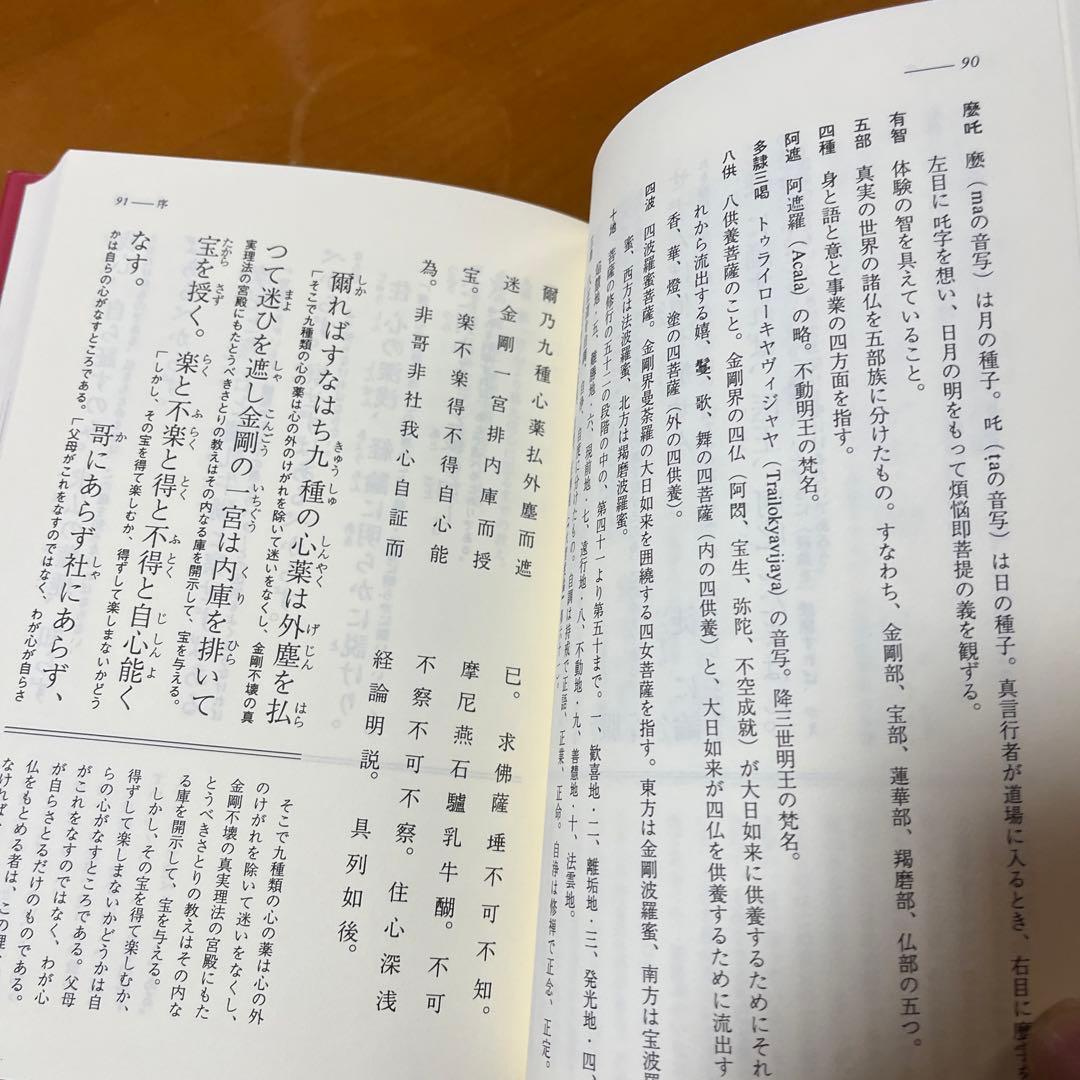 90
麼吒 麽(maの音写)は月の種子。吒(taの音写)は日の種子。真言行者が道場に入るとき、右目に麼字
左目に吒字を想い、日月の明をもって煩悩即菩提の義を観ずる。
有智 体験の智を具えていること。
五部 真実の世界の諸仏を五部族に分けたもの。すなわち、金剛部、宝部、蓮華部、羯磨部、仏部の五つ。
四種 身と語と意と事業の四方面を指す。
阿遮 阿遮羅(Acala)の略。不動明王の梵名。
多隷三喝 トゥライローキヤヴィジャヤ(Trailokyavijaya)の音写。降三世明王の梵名。
八供 八供養菩薩のこと。金剛界の四仏(阿閦、宝生、弥陀、不空成就)が大日如来に供養するためにそれ
れから流出する嬉、鬘、歌、舞の四菩薩(内の四供養)と、大日如来が四仏を供養するために流出す
香、華、燈、塗の四菩薩(外の四供養)。
四波 四波羅蜜菩薩。金剛界曼荼羅の大日如来を囲繞する四女菩薩を指す。東方は金剛波羅蜜、南方は宝波羅
蜜、西方は法波羅蜜、北方は羯磨波羅蜜。
十地 菩薩の修行の五十二の段階の中の、第四十一より第五十まで。一、歓喜地・二、離垢地・三、発光地・四、
地・五、難勝地・六、現前地・七、遠行地・八、不動地・九、善慧地・十、法雲地。
自調は持戒で正語、正業、正命。自浄は修禅で正念、正定。
91 序
爾乃九種心薬払外塵而遮
迷金剛一宮排内庫而授
宝。楽不楽得不得自心能
為。非哥非社我心自証而
已。求佛薩埵不可不知。
摩尼燕石驢乳牛醐。不可
不察不可不察。住心深浅
経論明説。具列如後。
爾ればすなはち九種の心薬は外塵を払
しか きゅうしゅ しんやく げじん はら
「そこで九種類の心の薬は心の外のけがれを除いて迷いをなくし、金剛不壊の真
つて迷ひを遮し金剛の一宮は内庫を排いて
まよ しゃ こんごう いちぐう くり ひら
実理法の宮殿にもたとうべきさとりの教えはその内なる庫を開示して、宝を与える。
宝を授く。楽と不楽と得と不得と自心能く
たから さず らく ふらく とく ふとく じしんよ
「しかし、その宝を得て楽しむか、得ずして楽しまないかどう
なす。哥にあらず社にあらず、
か しゃ
かは自らの心がなすところである。「父母がこれをなすのではなく、わが心が自らさ
そこで九種類の心の薬は心の外
のけがれを除いて迷いをなくし、
金剛不壊の真実理法の宮殿にもた
とうべきさとりの教えはその内な
る庫を開示して、宝を与える。
しかし、その宝を得て楽しむか、
得ずして楽しまないかどうかは自
らの心がなすところである。父母
がこれをなすのではなく、わが心
が自らさとるだけのものである。
仏をもとめる者は、この理
なければ